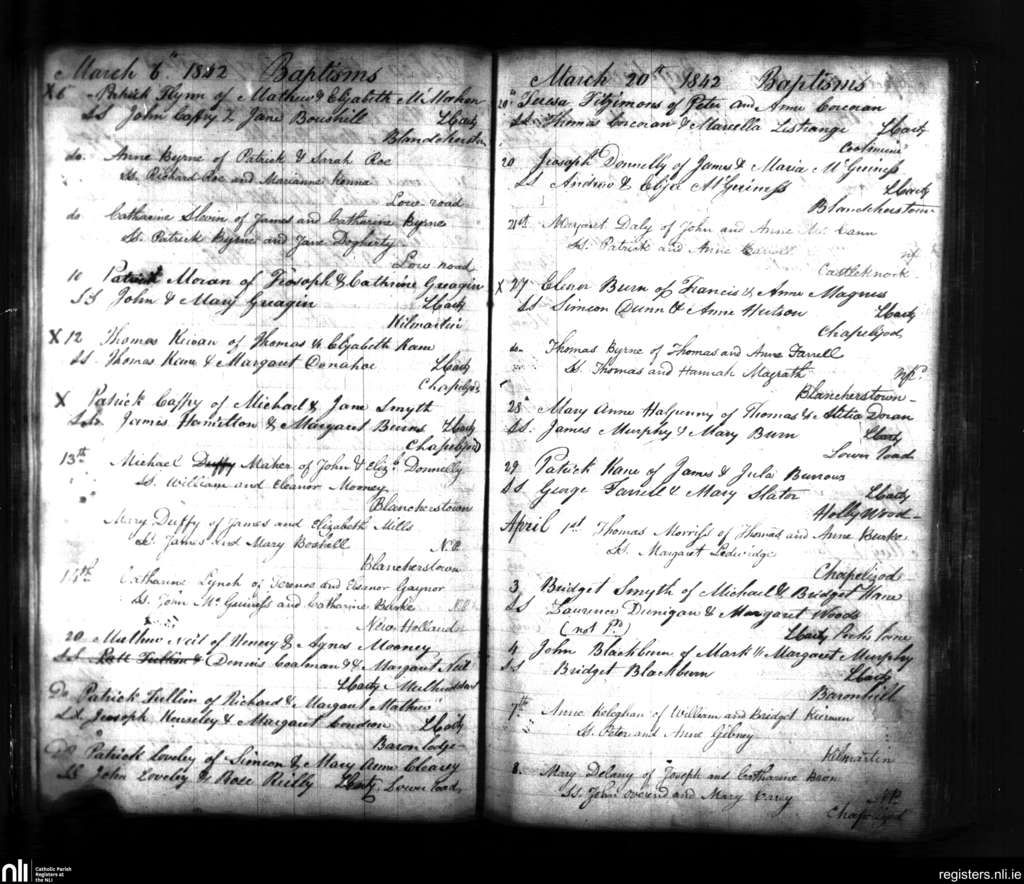 March 6th 1842 Baptisms
X 6 Patrick Flynn of Mathew & Elizabeth McMahon
SS John Caffry & Jane Boushill
Blanchestn
do. Anne Byrne of Patrick & Sarah Roe
Ss. Richard Roe and Marianne Kenna
Low-road
do Catharine Slevin of James and Catharine Byrne
Ss. Patrick Byrne and Jane Dogherty
Low road
10 Patrick Moran of Joseph & Cathrine Greagin
SS John & Mary Greagin
Kilmartin
X 12 Thomas Kiwan of Thomas & Elizabeth Kane
SS. Thomas Kane & Margaret Donahoe
Chapelizod
X Patrick Caffry of Michael & Jane Smyth
James Hamilton & Margaret Burns
Chapelizod
13th Michael Duffy Maher of John & Eliz. Donnelly
Ss. William and Eleanor Mooney
Blancherstown
Mary Duffy of James and Elizabeth Mills
Ss. James and Mary Boshell
Blancherstown
14th Catharine Lynch of Terence and Elenor Gaynor
Ss. John McGuiness and Catharine Burke
New Holland
20 Mathew Neil of Henery & Agnes Mooney
SS Patt Fullin & Dennis Coalman & Margaret Neil
Do Patrick Fullin of Richard & Margaret Mathew
SS. Joseph Kenseley & Margaret
Baron lodge
Patrick Loveley of Simeon & Mary Anne Clearey
SS John Loveley & Rose Reilly Lower road
March 20th 1842 Baptisms
20th Teresa Fitzimons of Peter and Anne Corcoran
SS. Thomas Corcoran & Marcella Lestrange
Coolmine
20 Joseph Donnelly of James & Maria McGuiness
SS Andrew & Eliza McGuiness
Blancherstown
21st Margaret Daly of John and Anne McCann
Ss. Patrick and Anne Carroll
Castleknock
X 27 Elenor Burn of Francis & Anne Magnes
SS Simeon Dunn & Anne Hutson
Chapelizod
do Thomas Byrne of Thomas and Anne Farrell
Ss. Thomas and Hannah Magrath
Blancherstown
28 Mary Anne Halpenny of Thomas & Doran
SS. James Murphy & Mary Burn
Lower road
29 Patrick Kane of James & Julia Burrows
SS George Farrell & Mary Slator
Holly Wood
April 1st Thomas Morriss of Thomas and Anne Burke
Ss. Margaret Ledwidge
Chapelizod
3 Bridget Smyth of Michael & Bridget Kane
SS Laurence Dunigan & Margaret Woods
(not Pd)
4 John Blackburn of Mark & Margaret Murphy
SS Bridget Blackburn
Baronhill
7th Anne Kologhan of William and Bridget Kiernan
Ss. Peter and Anne Gibney
Kilmartin
8. Mary Delany of Joseph and Catharine Bron
Ss. John Overend and Mary Carey
N.P.
Chapelizod
nli Catholic Parish Registers at the NLI
registers.nli.ie